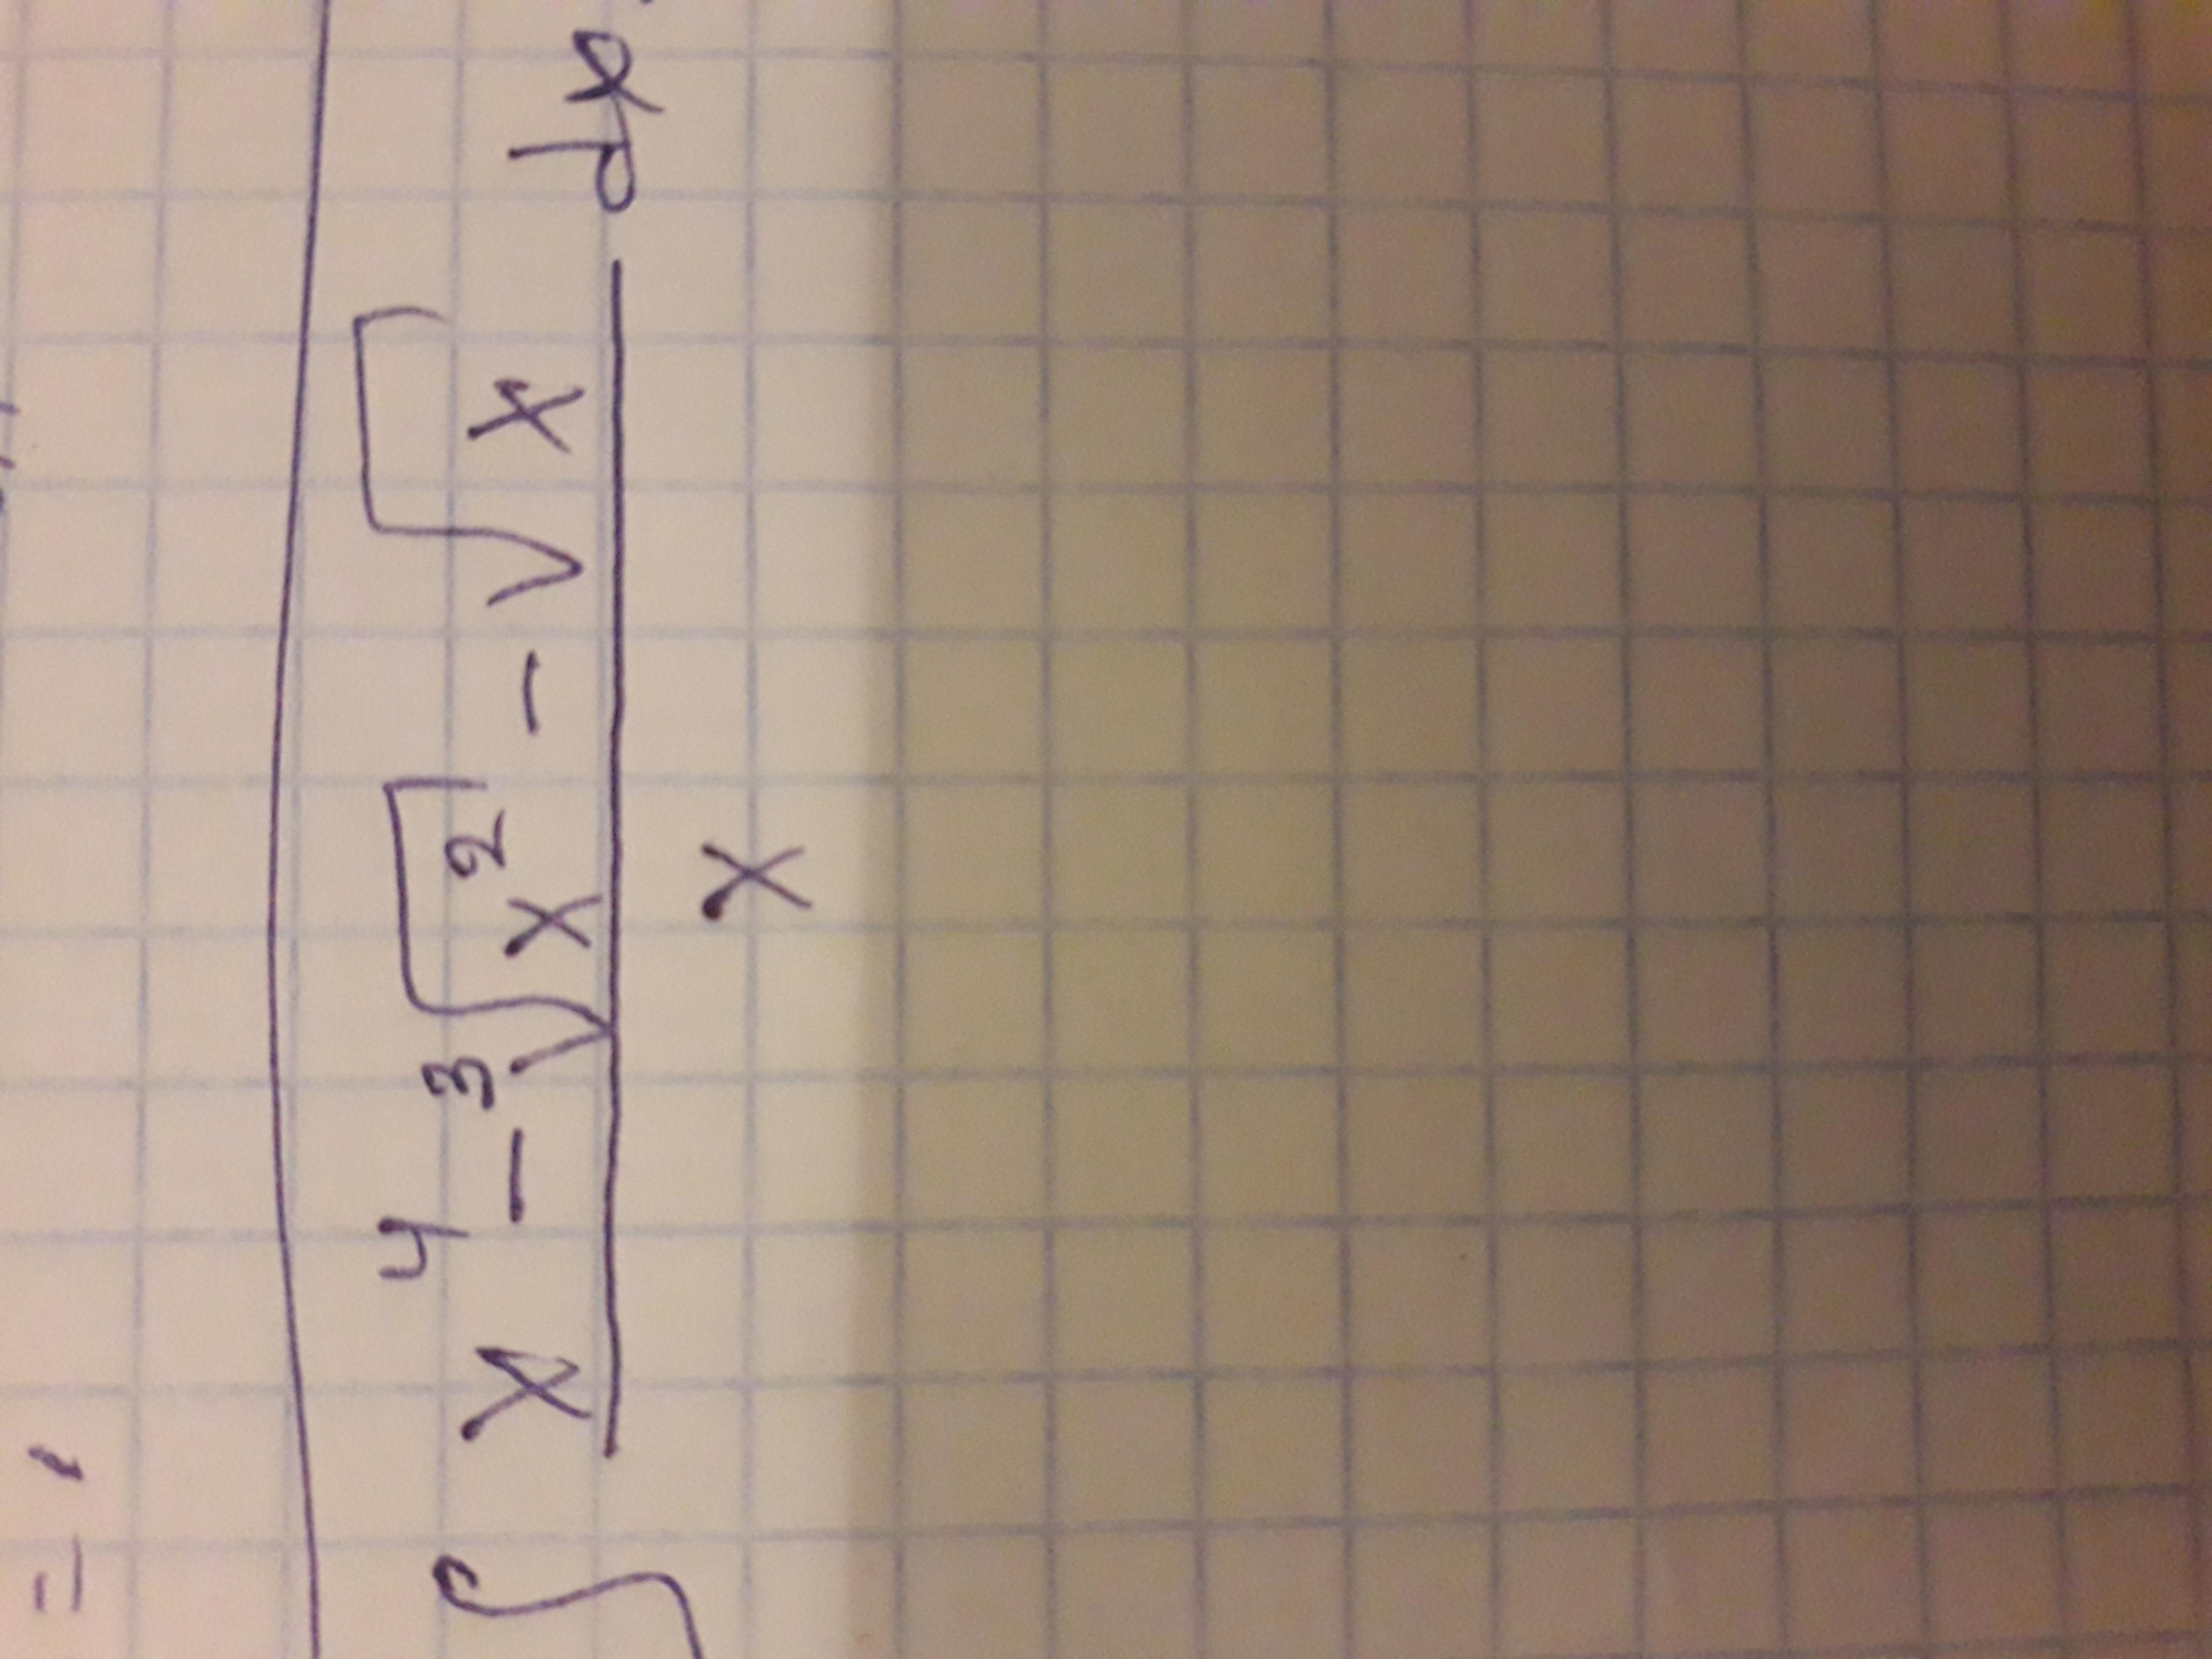 ∫ (x⁴ - ³√(x²) - √x) / x dx